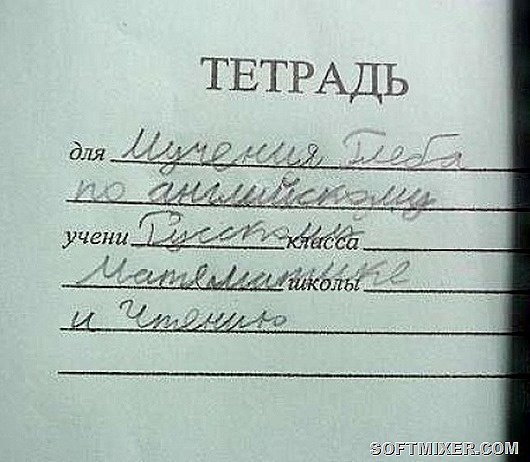 ТЕТРАДЬ
для Мучения Глеба
по английскому
учени Русскому класса
Математике школы
и Чтению
SOFTMIXER.COM